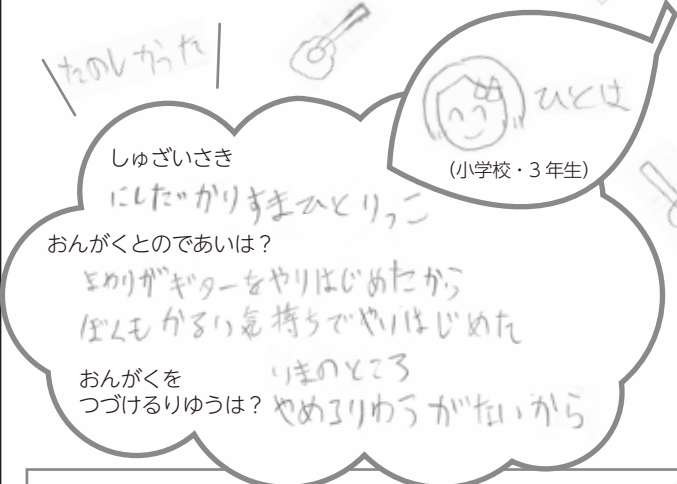 たのしかった
ひとは
(小学校・3年生)
しゅざいさき
にしたかりすまひとりっこ
おんがくとのであいは？
まわりがギターをやりはじめたから
ぼくもかるい気持ちでやりはじめた
おんがくを
つづけるりゆうは？
いまのところ
やめるりゆうがないから